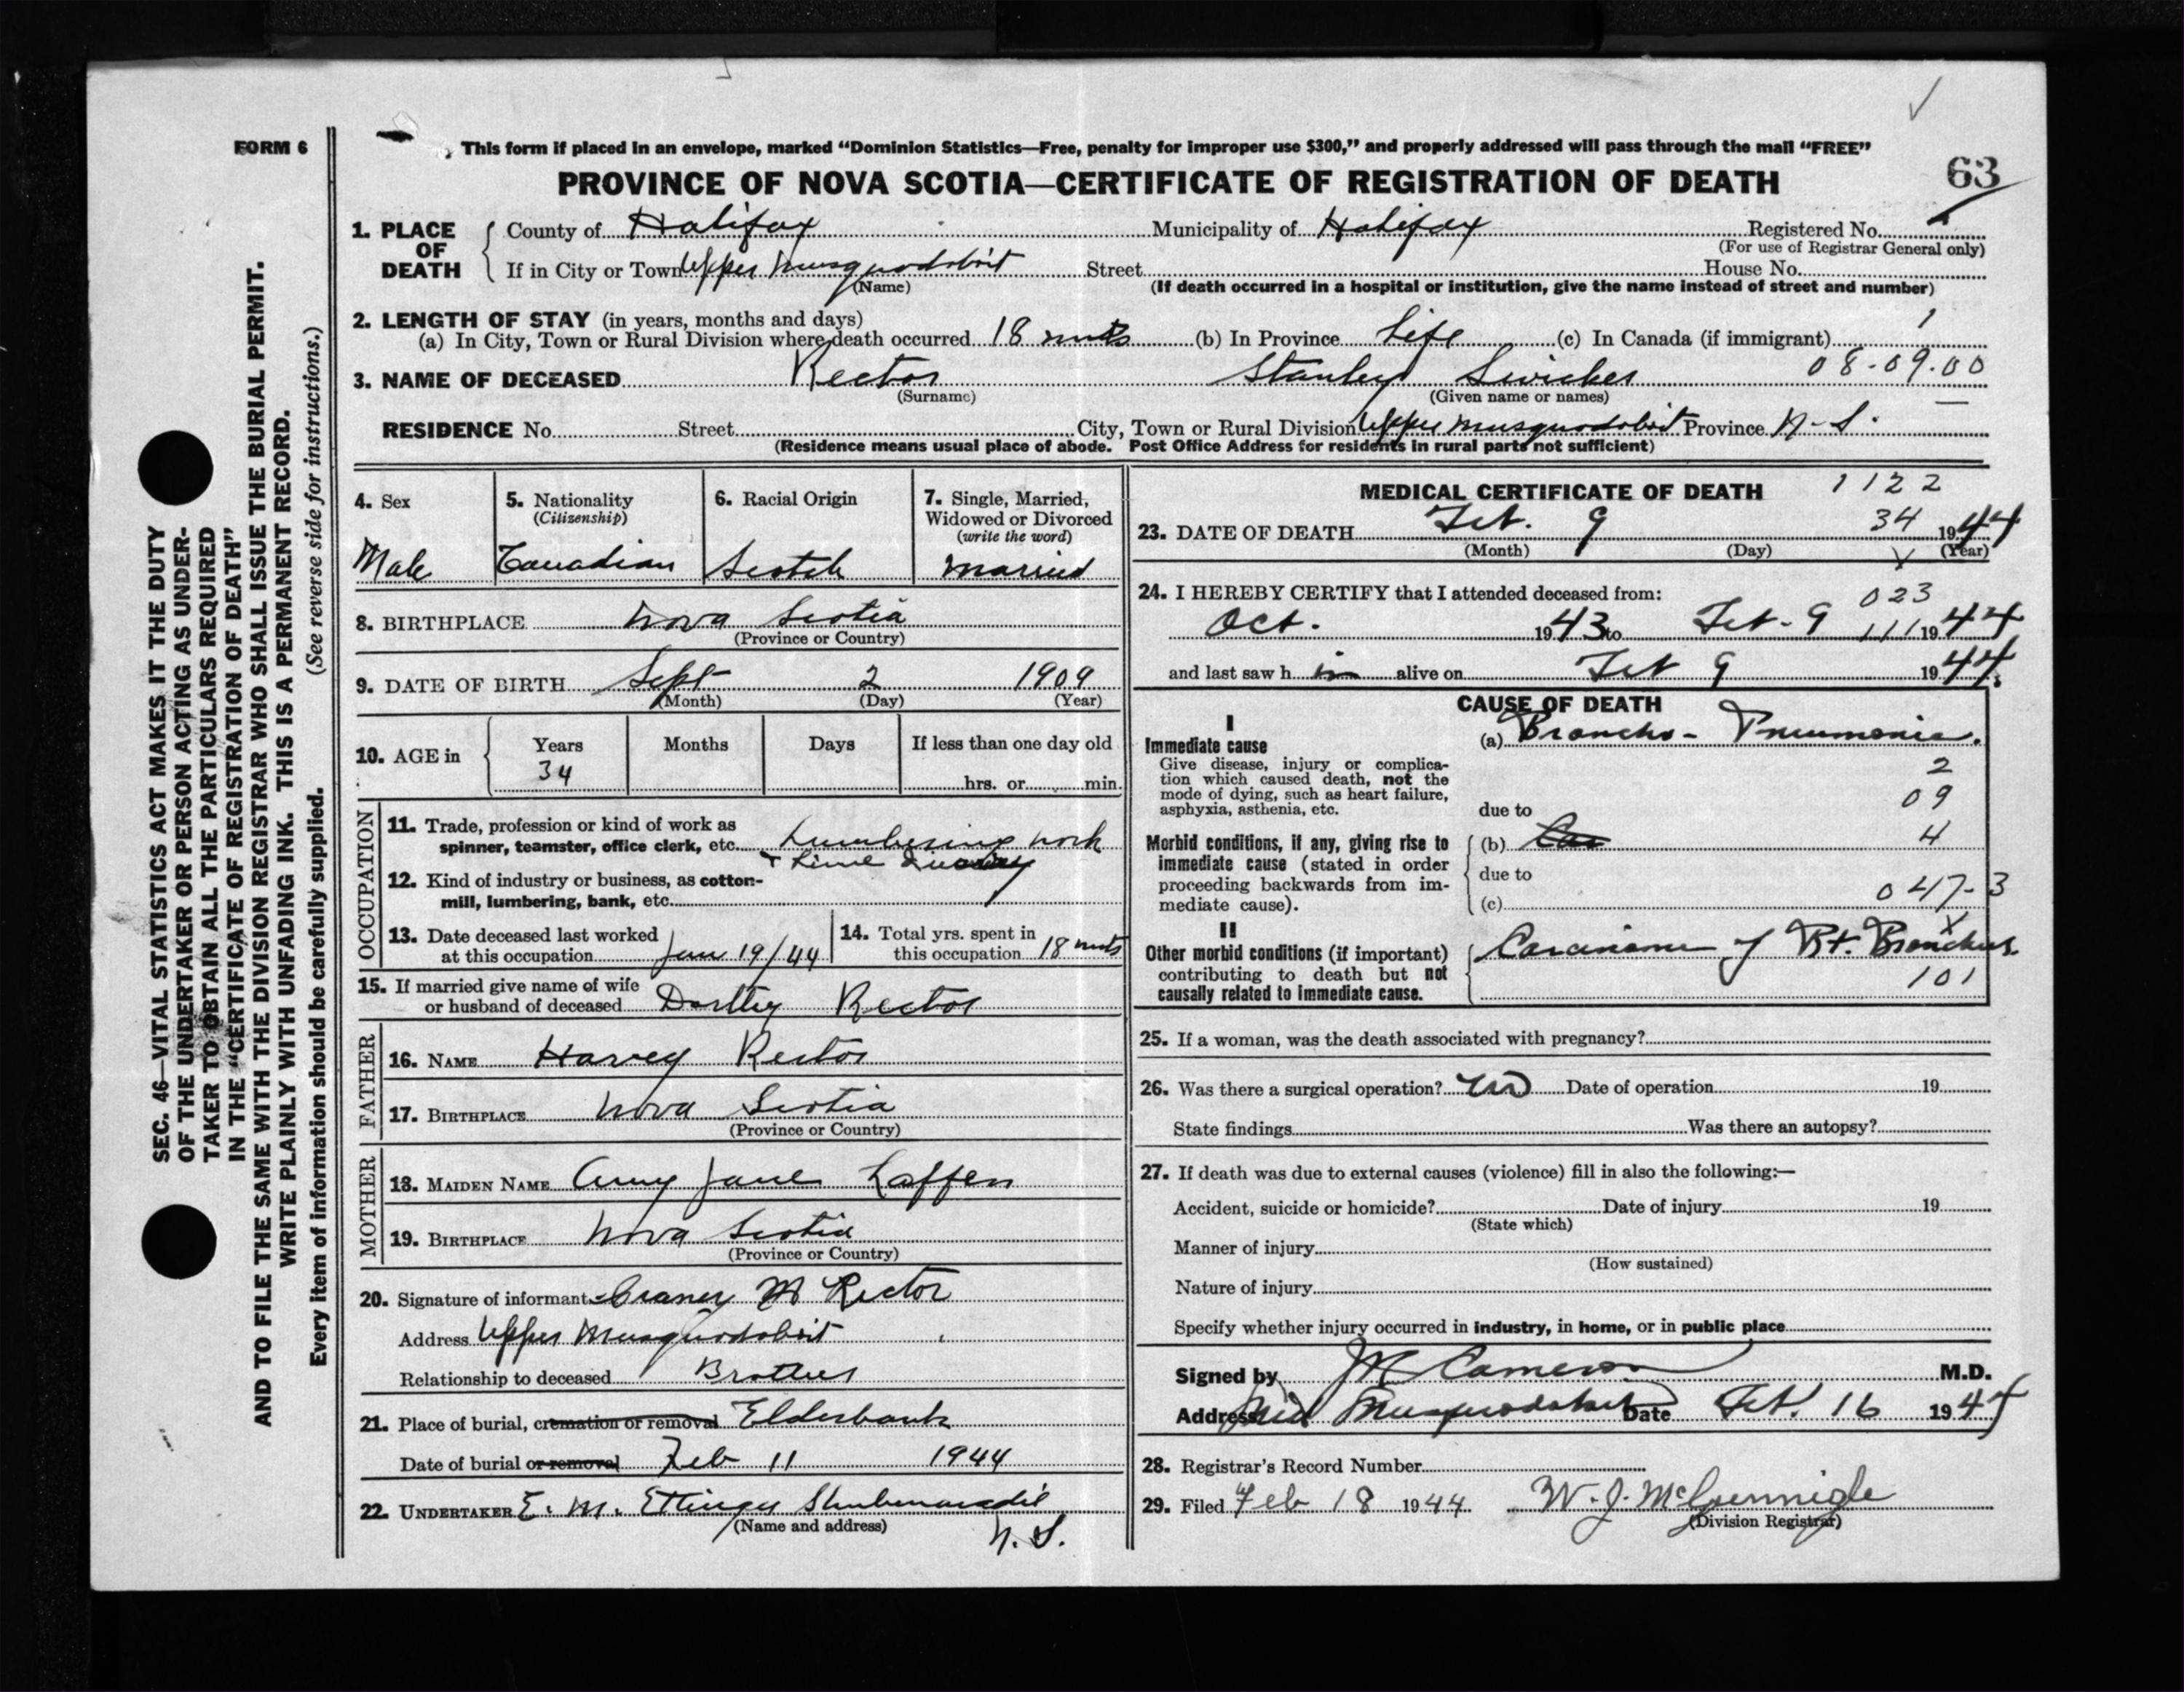 FORM 6
This form if placed in an envelope, marked “Dominion Statistics—Free, penalty for improper use $300,” and properly addressed will pass through the mail “FREE”
PROVINCE OF NOVA SCOTIA—CERTIFICATE OF REGISTRATION OF DEATH
63
1. PLACE OF DEATH
County of Halifax Municipality of Halifax Registered No.
(For use of Registrar General only)
If in City or Town Upper Musquodoboit Street House No.
(Name) (If death occurred in a hospital or institution, give the name instead of street and number)
2. LENGTH OF STAY (in years, months and days)
(a) In City, Town or Rural Division where death occurred 18 mnts (b) In Province Life (c) In Canada (if immigrant) 1
3. NAME OF DECEASED Rector Stanley 08-09.00
(Surname) (Given name or names)
RESIDENCE No. Street City, Town or Rural Division Upper Musquodoboit Province N-S.
(Residence means usual place of abode. Post Office Address for residents in rural parts not sufficient)
4. Sex
Male
5. Nationality
(Citizenship)
Canadian
6. Racial Origin
Scotch
7. Single, Married,
Widowed or Divorced
(write the word)
Married
8. BIRTHPLACE Nova Scotia
(Province or Country)
9. DATE OF BIRTH Sept 2 1909
(Month) (Day) (Year)
10. AGE in
Years Months Days If less than one day old
34
hrs. or min.
OCCUPATION
11. Trade, profession or kind of work as
spinner, teamster, office clerk, etc. Lumbering work
+ Lime Quarry
12. Kind of industry or business, as cotton-
mill, lumbering, bank, etc.
13. Date deceased last worked
at this occupation Jan 19/44
14. Total yrs. spent in
this occupation 18 mnts
15. If married give name of wife
or husband of deceased Dorthy Rector
FATHER
16. NAME Harvey Rector
17. BIRTHPLACE Nova Scotia
(Province or Country)
MOTHER
18. MAIDEN NAME Amy Jane Laffen
19. BIRTHPLACE Nova Scotia
(Province or Country)
20. Signature of informant M Rector
Address Upper Musquodoboit
Relationship to deceased Brother
21. Place of burial, cremation or removal Elderbank
Date of burial or removal Feb 11 1944
22. UNDERTAKER E. M. Ettinger Shubenacadie
(Name and address) N.S.
MEDICAL CERTIFICATE OF DEATH 1122
34
23. DATE OF DEATH Feb. 9 1944
(Month) (Day) (Year)
24. I HEREBY CERTIFY that I attended deceased from: 023
Oct. 1943 to Feb-9 111 1944
and last saw h im alive on Feb 9 1944.
CAUSE OF DEATH
I
Immediate cause
Give disease, injury or complica-
tion which caused death, not the
mode of dying, such as heart failure,
asphyxia, asthenia, etc.
(a) Broncho-Pneumonia.
2
09
due to
Morbid conditions, if any, giving rise to
immediate cause (stated in order
proceeding backwards from im-
mediate cause).
(b) Car 4
due to
(c) 047-3
II
Other morbid conditions (if important)
contributing to death but not
causally related to immediate cause.
Carcinoma of Rt. Bronchus
101
25. If a woman, was the death associated with pregnancy?
26. Was there a surgical operation? no Date of operation 19
State findings Was there an autopsy?
27. If death was due to external causes (violence) fill in also the following:—
Accident, suicide or homicide? Date of injury 19
(State which)
Manner of injury
(How sustained)
Nature of injury
Specify whether injury occurred in industry, in home, or in public place
Signed by Cameron M.D.
Address Mid Musquodoboit Date Feb. 16 1944
28. Registrar's Record Number
29. Filed Feb 18 1944
(Division Registrar)
SEC. 46—VITAL STATISTICS ACT MAKES IT THE DUTY
OF THE UNDERTAKER OR PERSON ACTING AS UNDER-
TAKER TO OBTAIN ALL THE PARTICULARS REQUIRED
IN THE “CERTIFICATE OF REGISTRATION OF DEATH”
AND TO FILE THE SAME WITH THE DIVISION REGISTRAR WHO SHALL ISSUE THE BURIAL PERMIT.
WRITE PLAINLY WITH UNFADING INK. THIS IS A PERMANENT RECORD.
Every item of information should be carefully supplied. (See reverse side for instructions.)